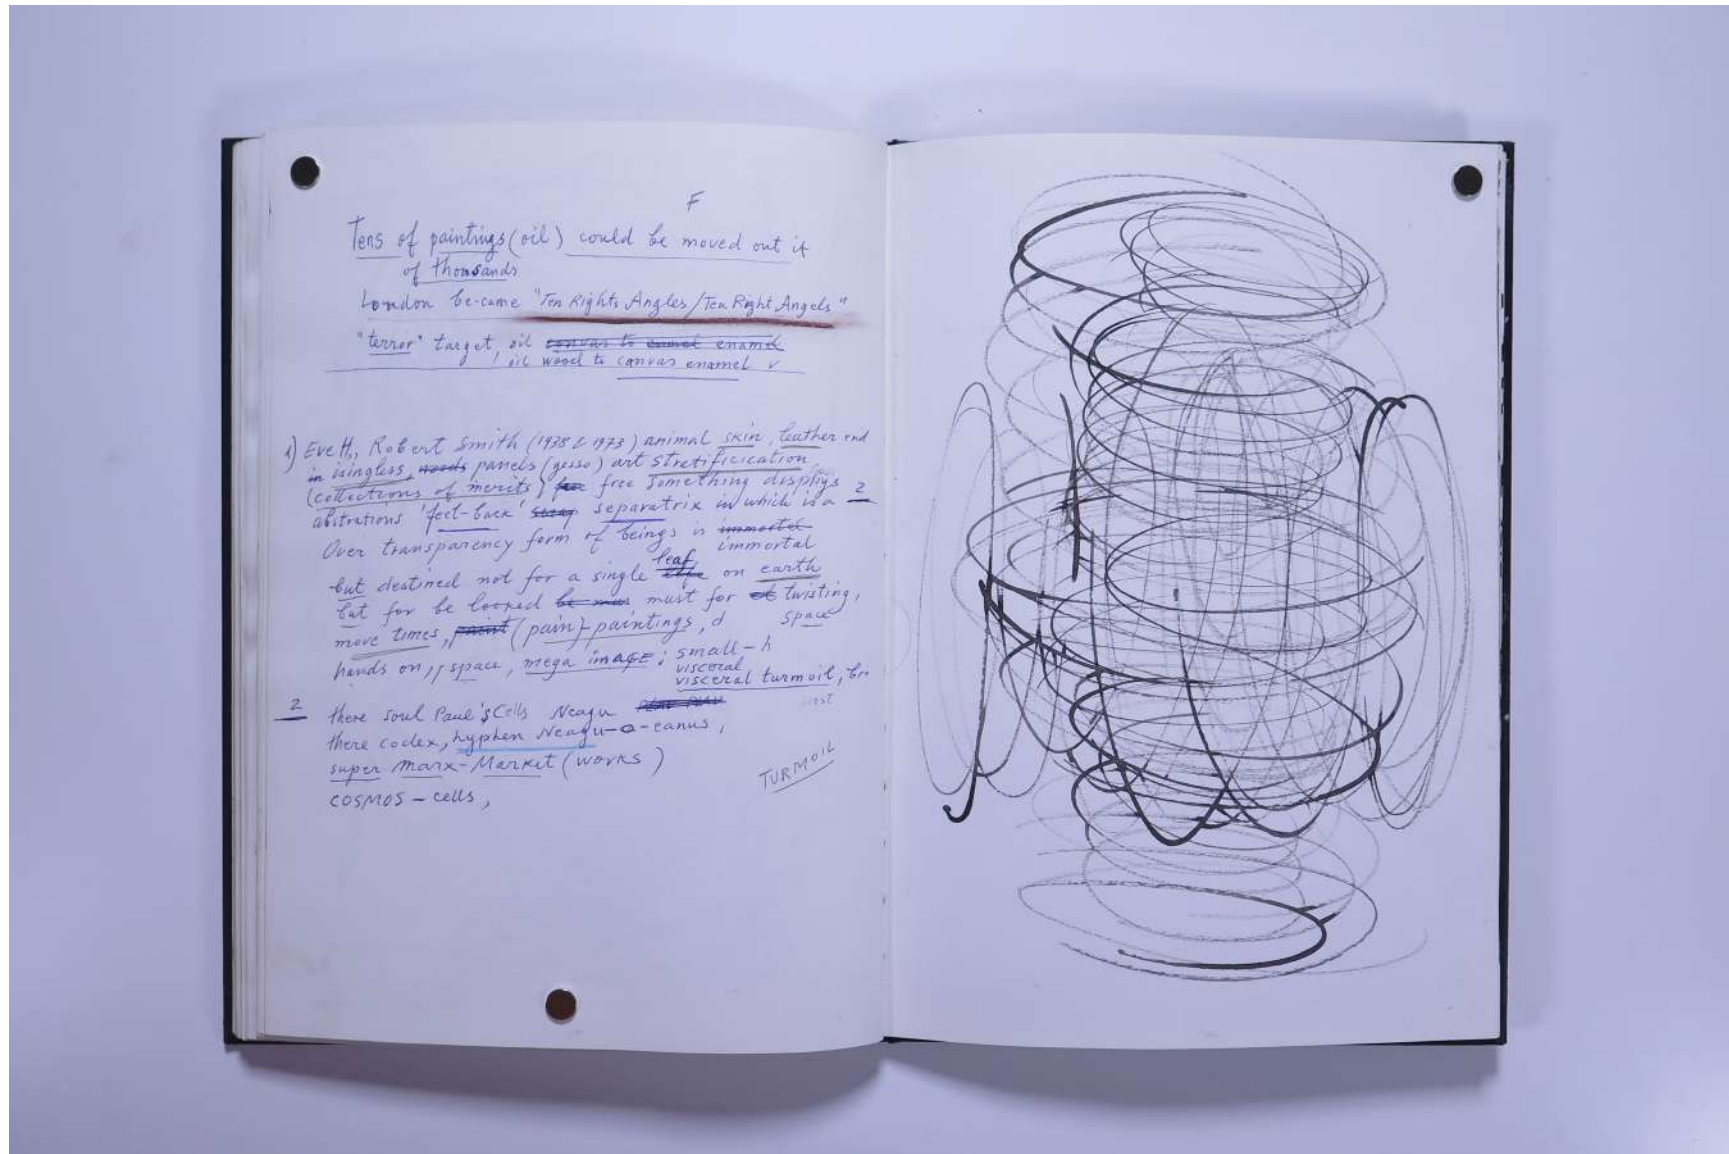 F
Tens of paintings (oil) could be moved out if
of thousands
London be-came "Ten Rights Angles/Ten Right Angels"
"terror" target, oil canvas to enamel enamel
oil wood to canvas enamel v
1) Eve H., Robert Smith (1938 & 1973) animal skin, leather and
in isingless, woods panels (gesso) art stretificication
(collections of merits) free something displays
abstrations 'feet-back' separatrix in which is a 2
Over transparency form of beings is immortel
immortal
leaf
but destined not for a single on earth
but for be looked be mus must for twisting,
move times, paint (pain)-paintings, d space
hands on, space, mega image; small-h
visceral
visceral turmoil,
2 there soul Paul's Cells Neagu
there codex, hyphen Neagu-o-eanus,
super Marx-Market (works)
TURMOIL
COSMOS-cells,